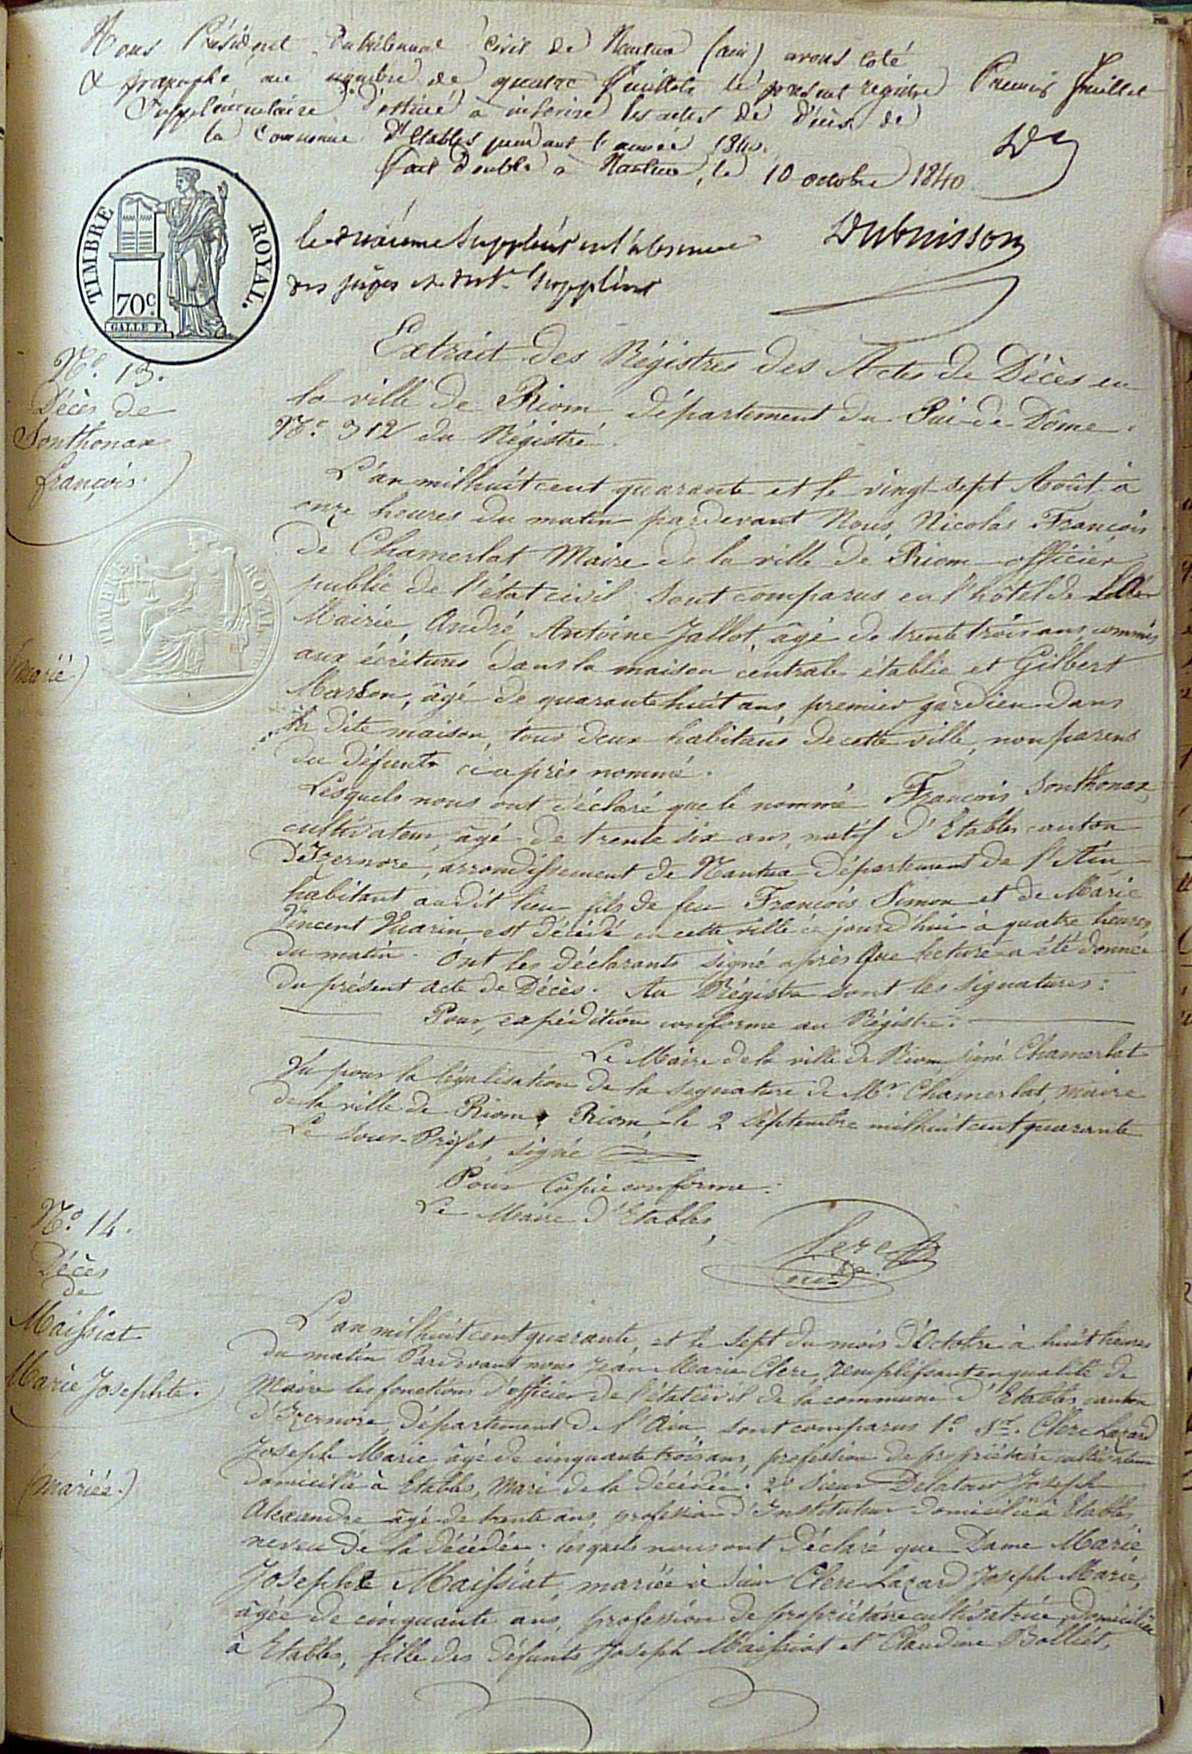 Nous Président du tribunal Civil de Nantua (ain) avons coté
& paraphé au nombre de quatre feuillets le présent registre
Supplémentaire destiné à inscrire les actes de décès de
la Commune d'Etables pendant l'année 1840.
fait double à Nantua, le 10 octobre 1840
Premier feuillet
D
le deuxième Suppléant en l'absence
des juges et du 1er Suppléant
Dubuisson
TIMBRE ROYAL.
70 c.
GALLE F.
N.° 13.
Décès de
Sonthonax
françois.
(marié)
TIMBRE ROYAL
Extrait des Régistres des Actes de Décès en
la ville de Riom département du Pui-de-Dôme.
N.° 312 du Régistre.
L'an mil huit cent quarante et le vingt-sept Août à
onze heures du matin pardevant Nous, Nicolas François
de Chamerlat Maire de la ville de Riom officier
public de l'état civil, sont comparus en l'hôtel de la
Mairie, André Antoine Jallot, âgé de trente trois ans, commis
aux écritures dans la maison centrale établie et Gilbert
Marson, âgé de quarante huit ans, premier gardien dans
la dite maison, tous deux habitans de cette ville, non parens
du défunt ci après nommé.
Lesquels nous ont déclaré que le nommé François Sonthonax,
cultivateur, âgé de trente six ans, natif d'Etables canton
d'Izernore, arrondissement de Nantua département de l'Ain
habitant audit lieu fils de feu François Simon et de Marie
Vincent Vuarin est décédé en cette ville ce jourd'hui à quatre heures
du matin. Ont les déclarants signé après que lecture a été donnée
du présent acte de Décès. Au Régistre sont les signatures:
Pour expédition conforme au Régistre:
Le Maire de la ville de Riom, signé Chamerlat
Vu pour la légalisation de la signature de Mr. Chamerlat, maire
de la ville de Riom, Riom, le 2 Septembre mil huit cent quarante
Le Sous-Préfet, signé
Pour Copie conforme:
Le Maire d'Etables,
Clerc
N.° 14.
Décès
de
Maissiat
Marie Josephte.
(mariée.)
L'an mil huit cent quarante, et le sept du mois d'Octobre à huit heures
du matin Pardevant nous Jean Marie Clerc, remplissant en qualité de
Maire les fonctions d'officier de l'état civil de la commune d'Etables, canton
d'Izernore département de l'Ain, sont comparus 1.° Sr. Clerc Lazard
Joseph Marie âgé de cinquante trois ans, profession de propriétaire cultivateur
domicilié à Etables, Mari de la décédée. 2.° Sieur Delatour Joseph
Alexandre âgé de trente ans, profession d'Instituteur domicilié à Etables
neveu de la décédée. lesquels nous ont déclaré que Dame Marie
Josephte Maissiat, mariée à Sieur Clerc Lazard Joseph Marie,
âgée de cinquante ans, profession de propriétaire cultivatrice, domiciliée
à Etables, fille des défunts Joseph Maissiat et Claudine Bolliet,